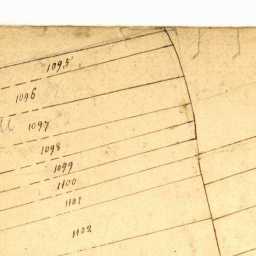 1095
1096
1097
1098
1099
1100
1101
1102